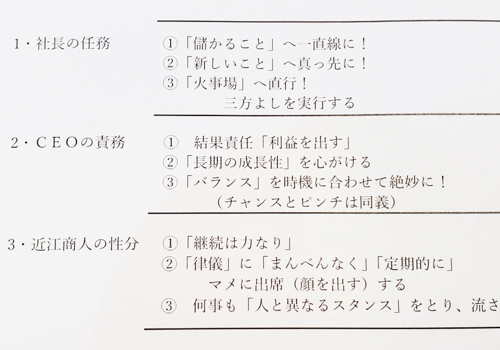 1・社長の任務
①「儲かること」へ一直線に！
②「新しいこと」へ真っ先に！
③「火事場」へ直行！
三方よしを実行する
2・ＣＥＯの責務
① 結果責任「利益を出す」
②「長期の成長性」を心がける
③「バランス」を時機に合わせて絶妙に！
（チャンスとピンチは同義）
3・近江商人の性分
①「継続は力なり」
②「律儀」に「まんべんなく」「定期的に」
マメに出席（顔を出す）する
③ 何事も「人と異なるスタンス」をとり、流さ